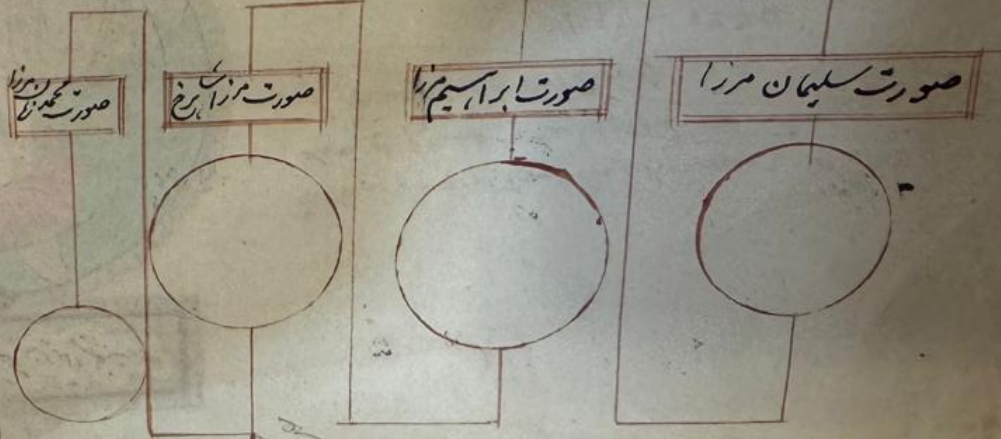 صورت سلیمان مرزا
صورت ابراہیم مرزا
صورت مرزا شاہرخ
صورت محمد زمان مرزا